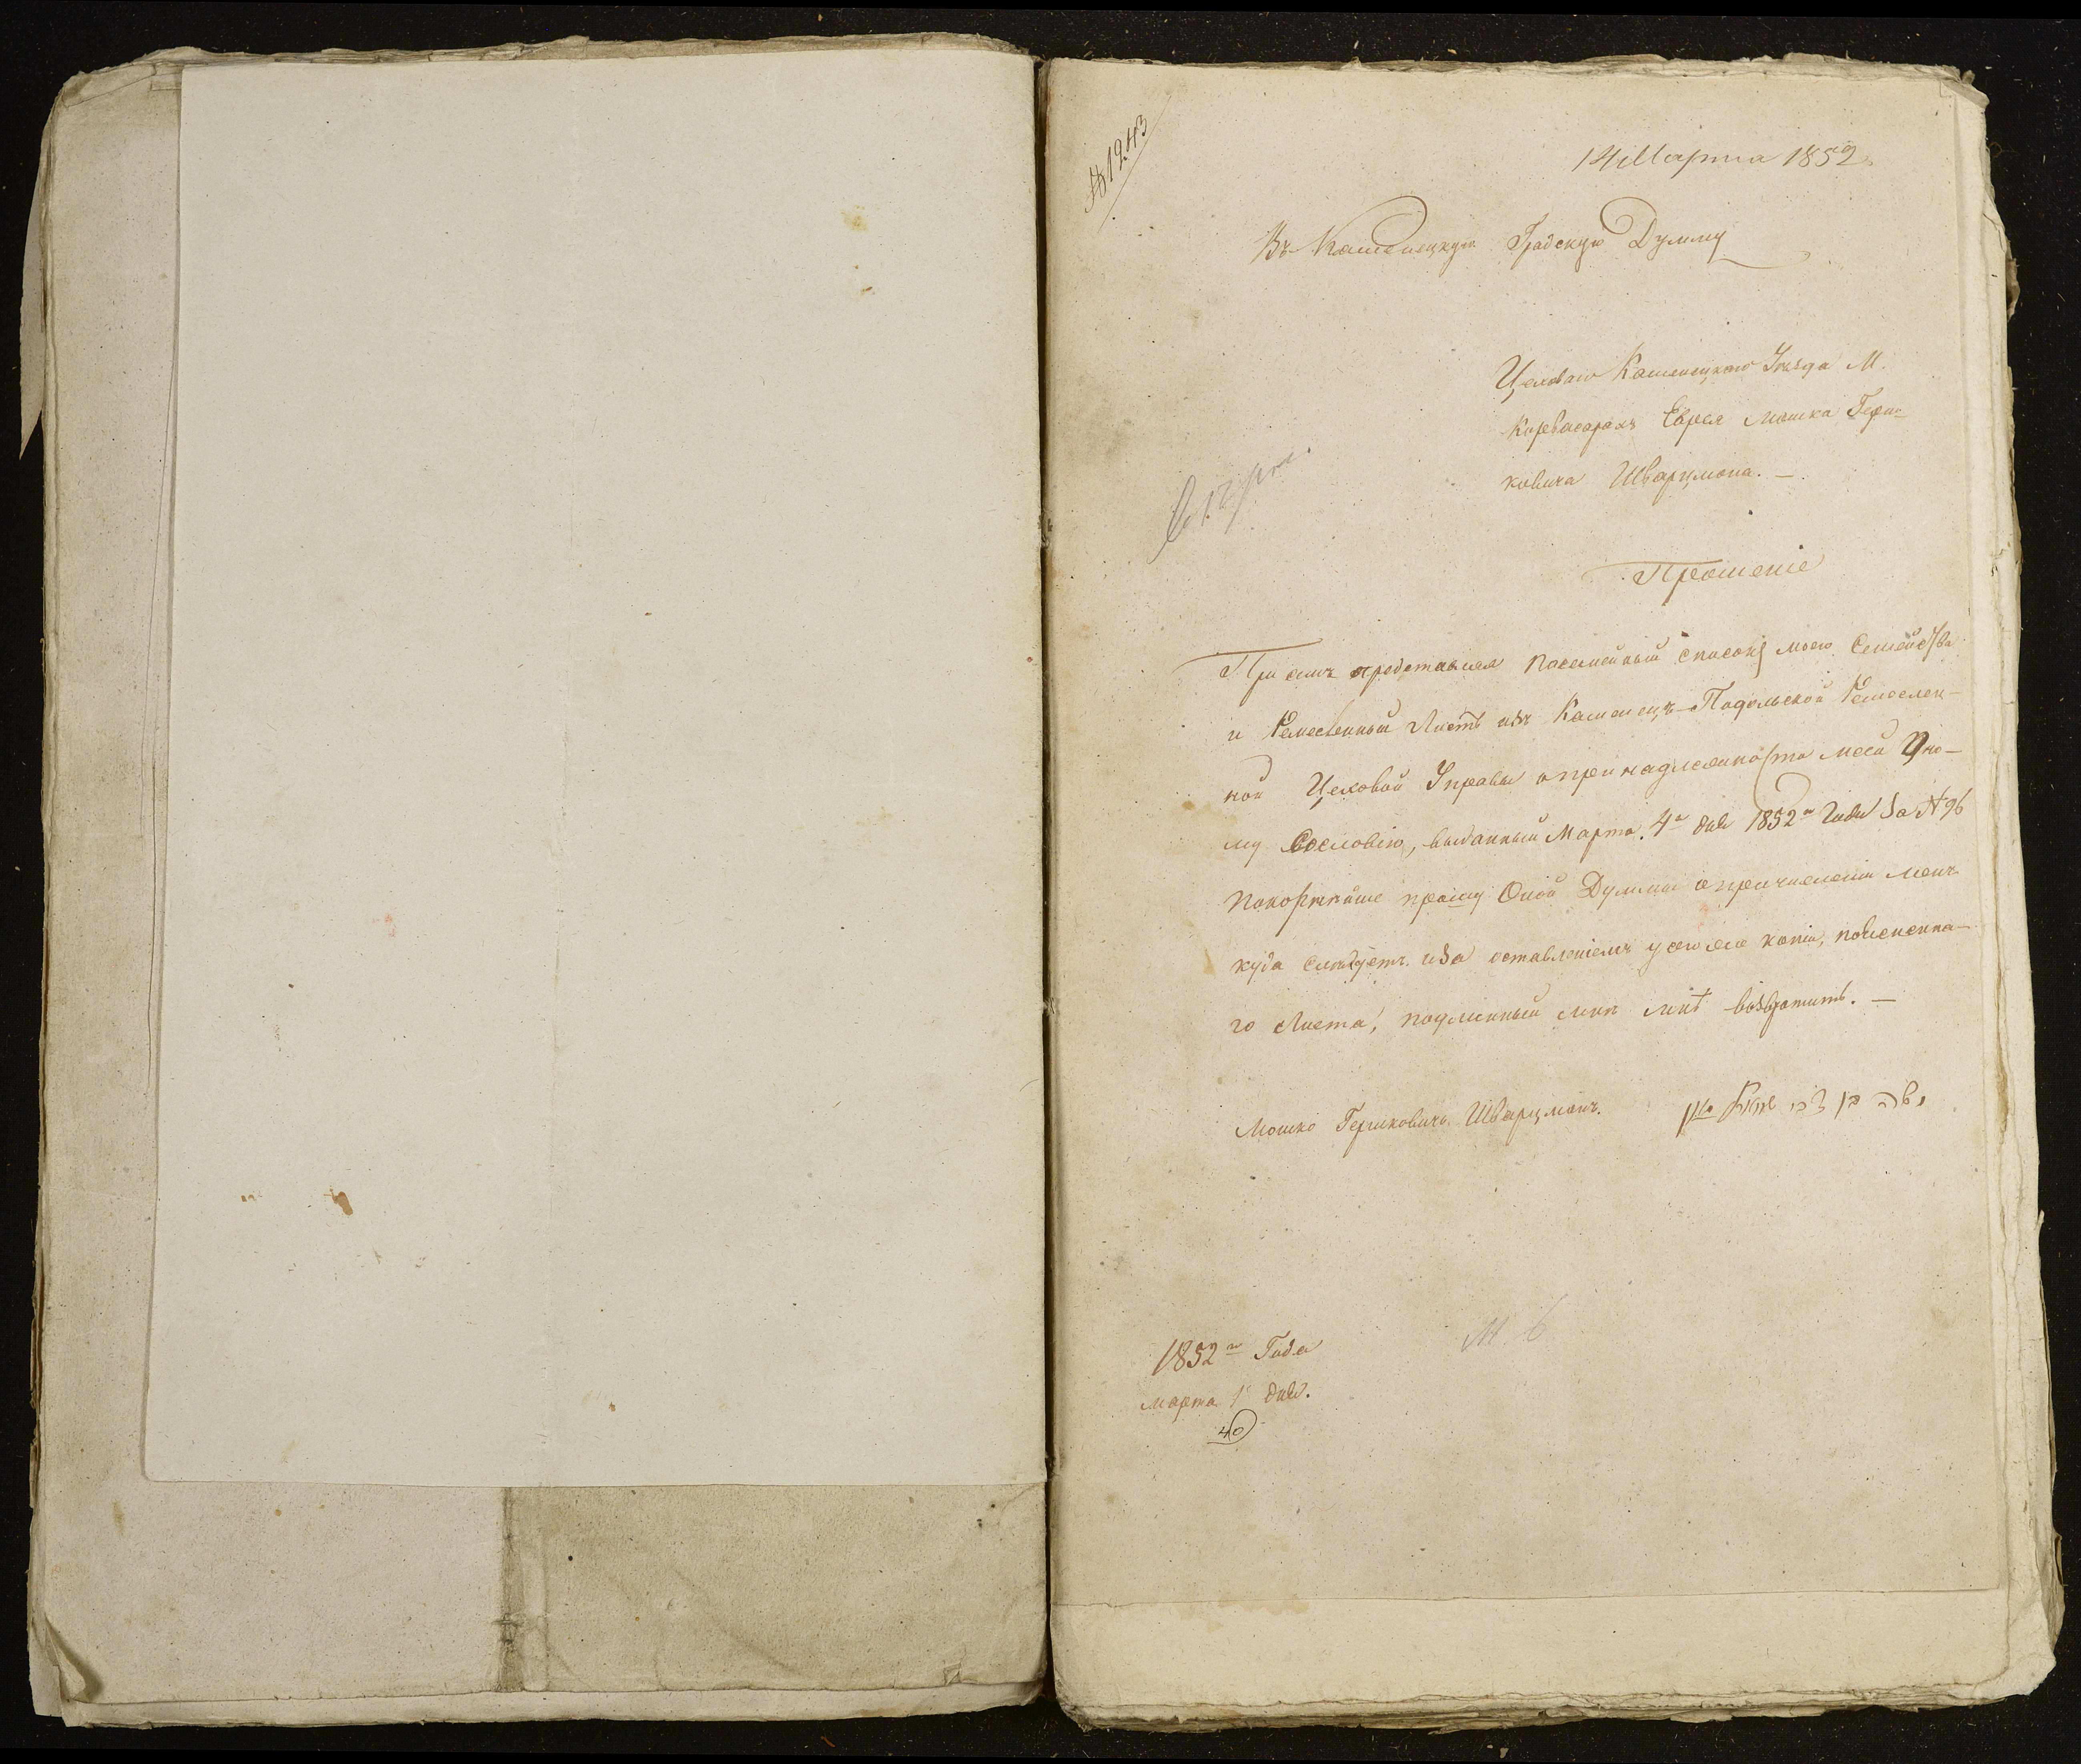 № 1243
14 Марта 1852
Въ Каменецкую Градскую Думму
Цеховаго Каменецкаго Уезда М.
Корвасарахъ Еврея Мошка Герш-
ковича Шварцмона. —
Прошеніе
При семъ представляя посемейный списокъ моего Семейства
и Ремесленный Листъ изъ Каменецъ-Подольской Ремеслен-
ной Цеховой Управы о принадлежности моей к
му Сословію, выданный Марта 4го дня 1852го Года За № 96
Покорнейше прошу Оной Думмы о причисленіи меня
куда следуетъ и за оставленіемъ у копіи, поименнна-
го Листа, подлинный мнѣ возвратить. —
Мошко Гершковичъ Шварцманъ. משה בן צבי
1852го Года
марта дня.
40